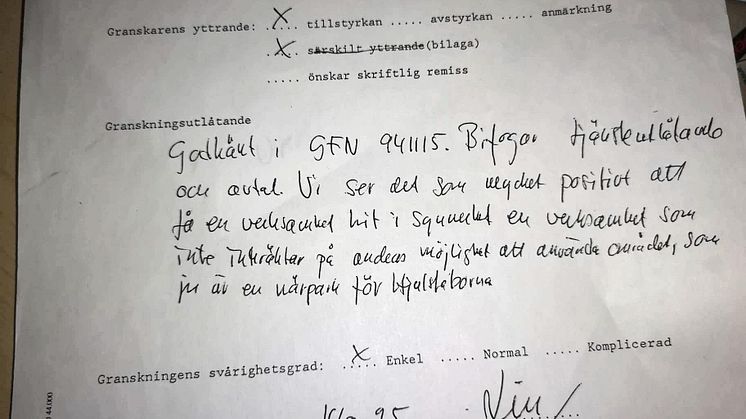 Granskarens yttrande: ..X.. tillstyrkan ..... avstyrkan ..... anmärkning
..X.. särskilt yttrande (bilaga)
..... önskar skriftlig remiss
Granskningsutlåtande
Godkänt i GFN 941115. Bifogar tjänsteutlåtande
och avtal. Vi ser det som mycket positivt att
få en verksamhet hit i synnerhet en verksamhet som
inte inkräktar på andras möjlighet att använda området, som
ju är en närpark för Hjulstaborna
Granskningens svårighetsgrad: ..X.. Enkel ..... Normal ..... Komplicerad
95
44.000